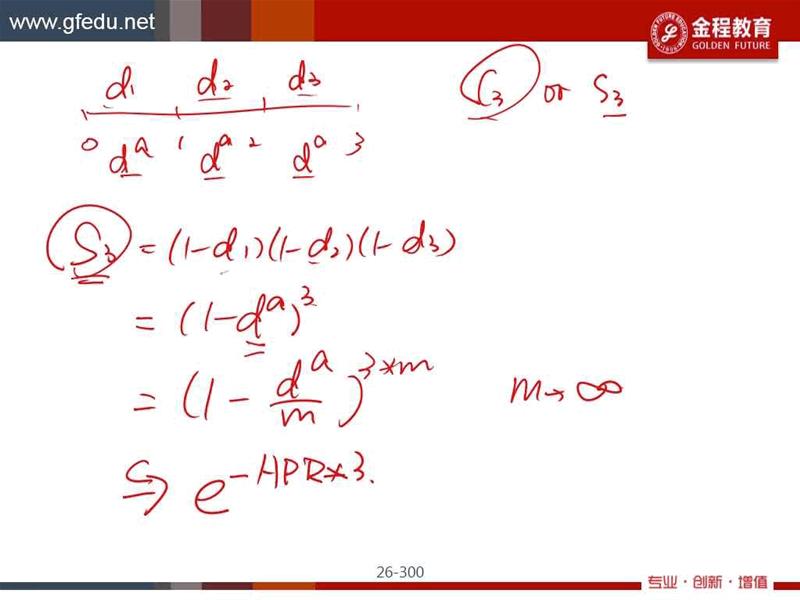 www.gfedu.net
金程教育
GOLDEN FUTURE
d₁ d₂ d₃
0 dᵃ 1 dᵃ 2 dᵃ 3
C₃ or S₃
S₃ = (1-d₁)(1-d₂)(1-d₃)
= (1-dᵃ)³
= (1 - dᵃ/m)^3*m m→∞
↪ e^-HPR*3.
26-300
专业·创新·增值